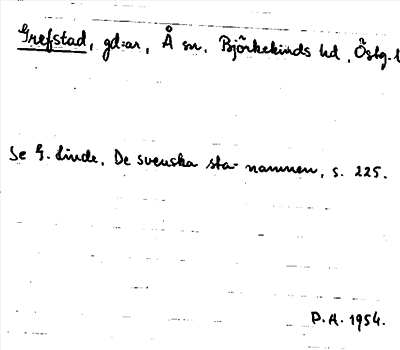 Grefstad, gd:ar, Å sn, Björkekinds hd, Östg. l
Se G. Linde, De svenska sta-namnen, s. 225.
P.A. 1954.